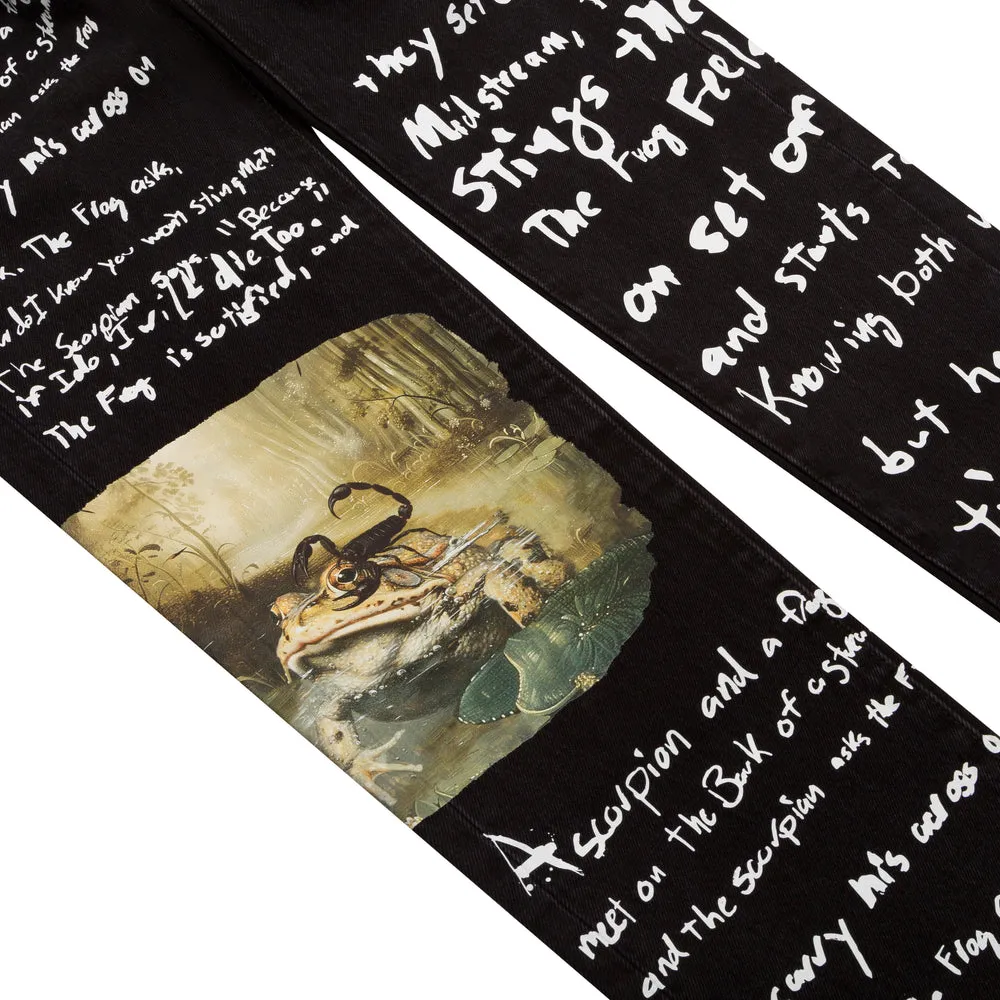 of a Stre
asks the Frog
his across on
The Frog asks,
do I know you won't sting me?"
The Scorpian says, "Because
if I do, I will die Too."
The Frog is satisfied, and
they set
Midstream,
Stings the
The Frog Feels
on set of
and starts
Knowing both
but ha
A scorpion and a frog
meet on the Bank of a Stream
and the scorpian asks the F
carry his across on
Frog